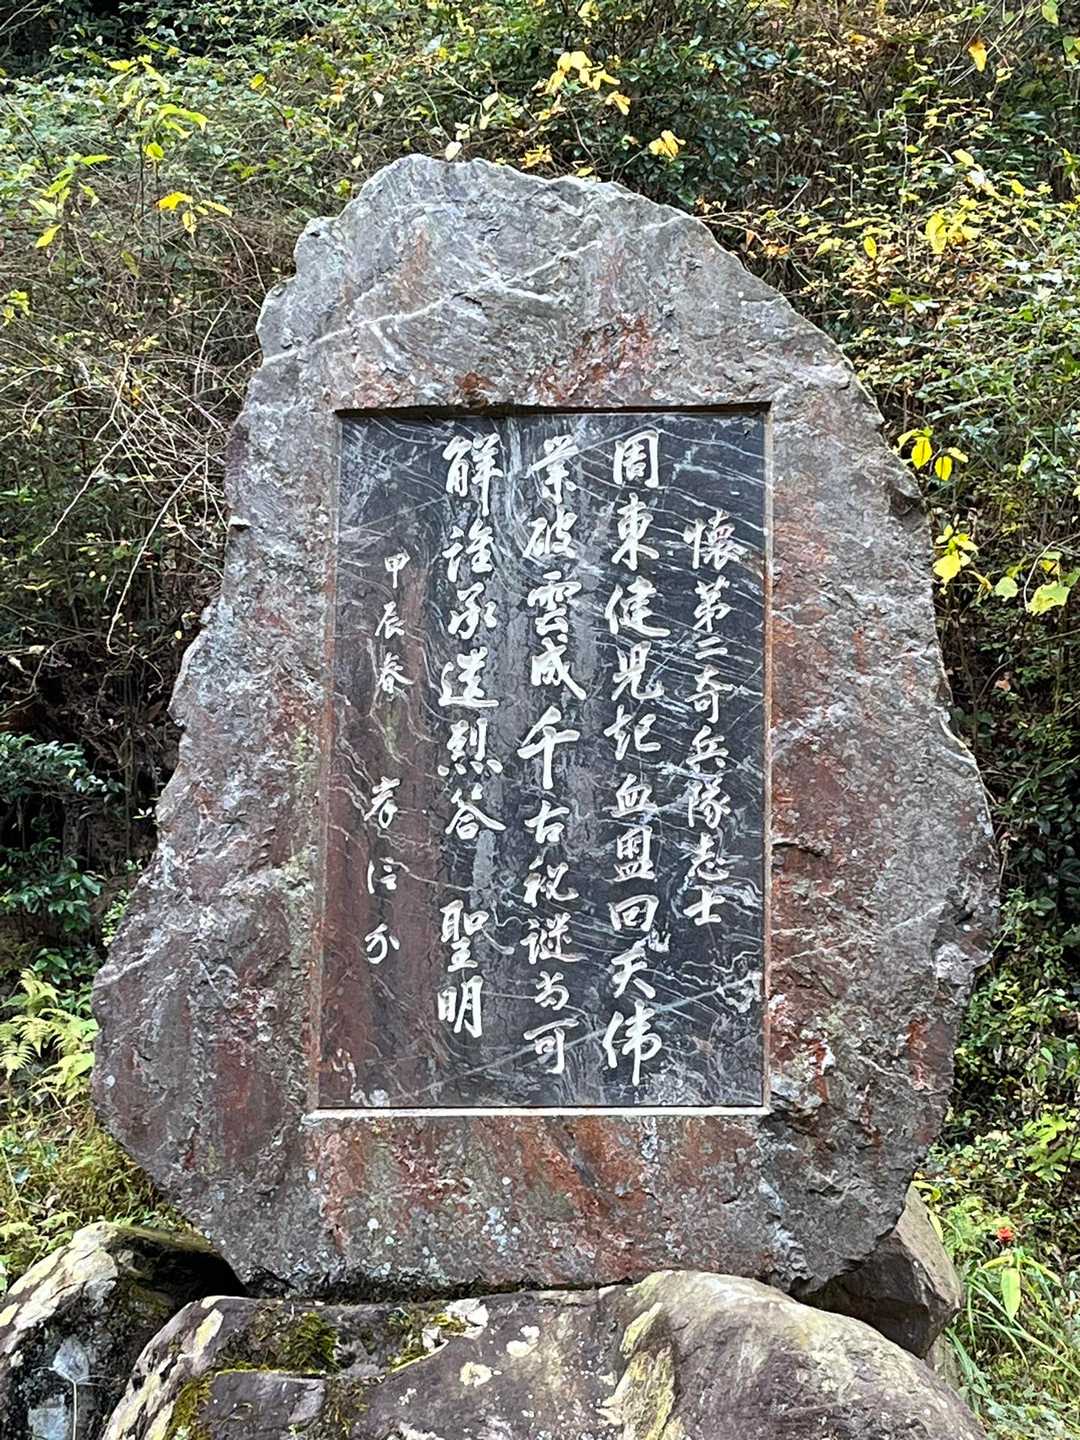 懷第二奇兵隊志士
周東健児起血盟回天偉
業破雲成千古秘謎尚可
解誰承遺烈答聖明
甲辰春 岸信介